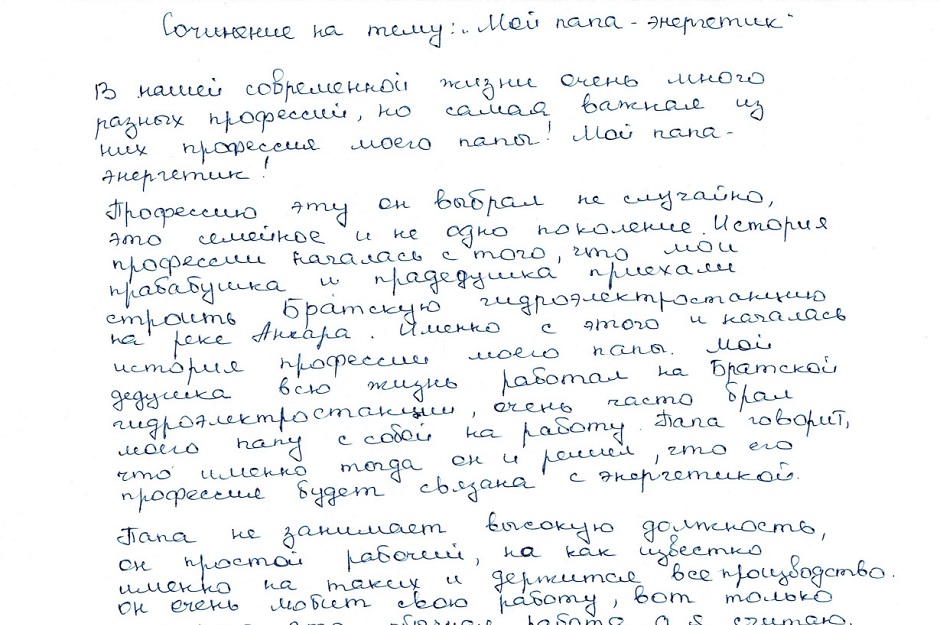 Сочинение на тему: „Мой папа - энергетик"
В нашей современной жизни очень много
разных профессий, но самая важная из
них профессия моего папы! Мой папа -
энергетик!
Профессию эту он выбрал не случайно,
это семейное и не одно поколение. История
профессии началась с того, что мои
прабабушка и прадедушка приехали
строить Братскую гидроэлектростанцию
на реке Ангара. Именно с этого и началась
история профессии моего папы. Мой
дедушка всю жизнь работал на Братской
гидроэлектростанции, очень часто брал
моего папу с собой на работу. Папа говорит,
что именно тогда он и решил, что его
профессия будет связана с энергетикой.
Папа не занимает высокую должность,
он простой рабочий, но как известно
именно на таких и держится все производство.
он очень любит свою работу, вот только
обычная работа, а я считаю,